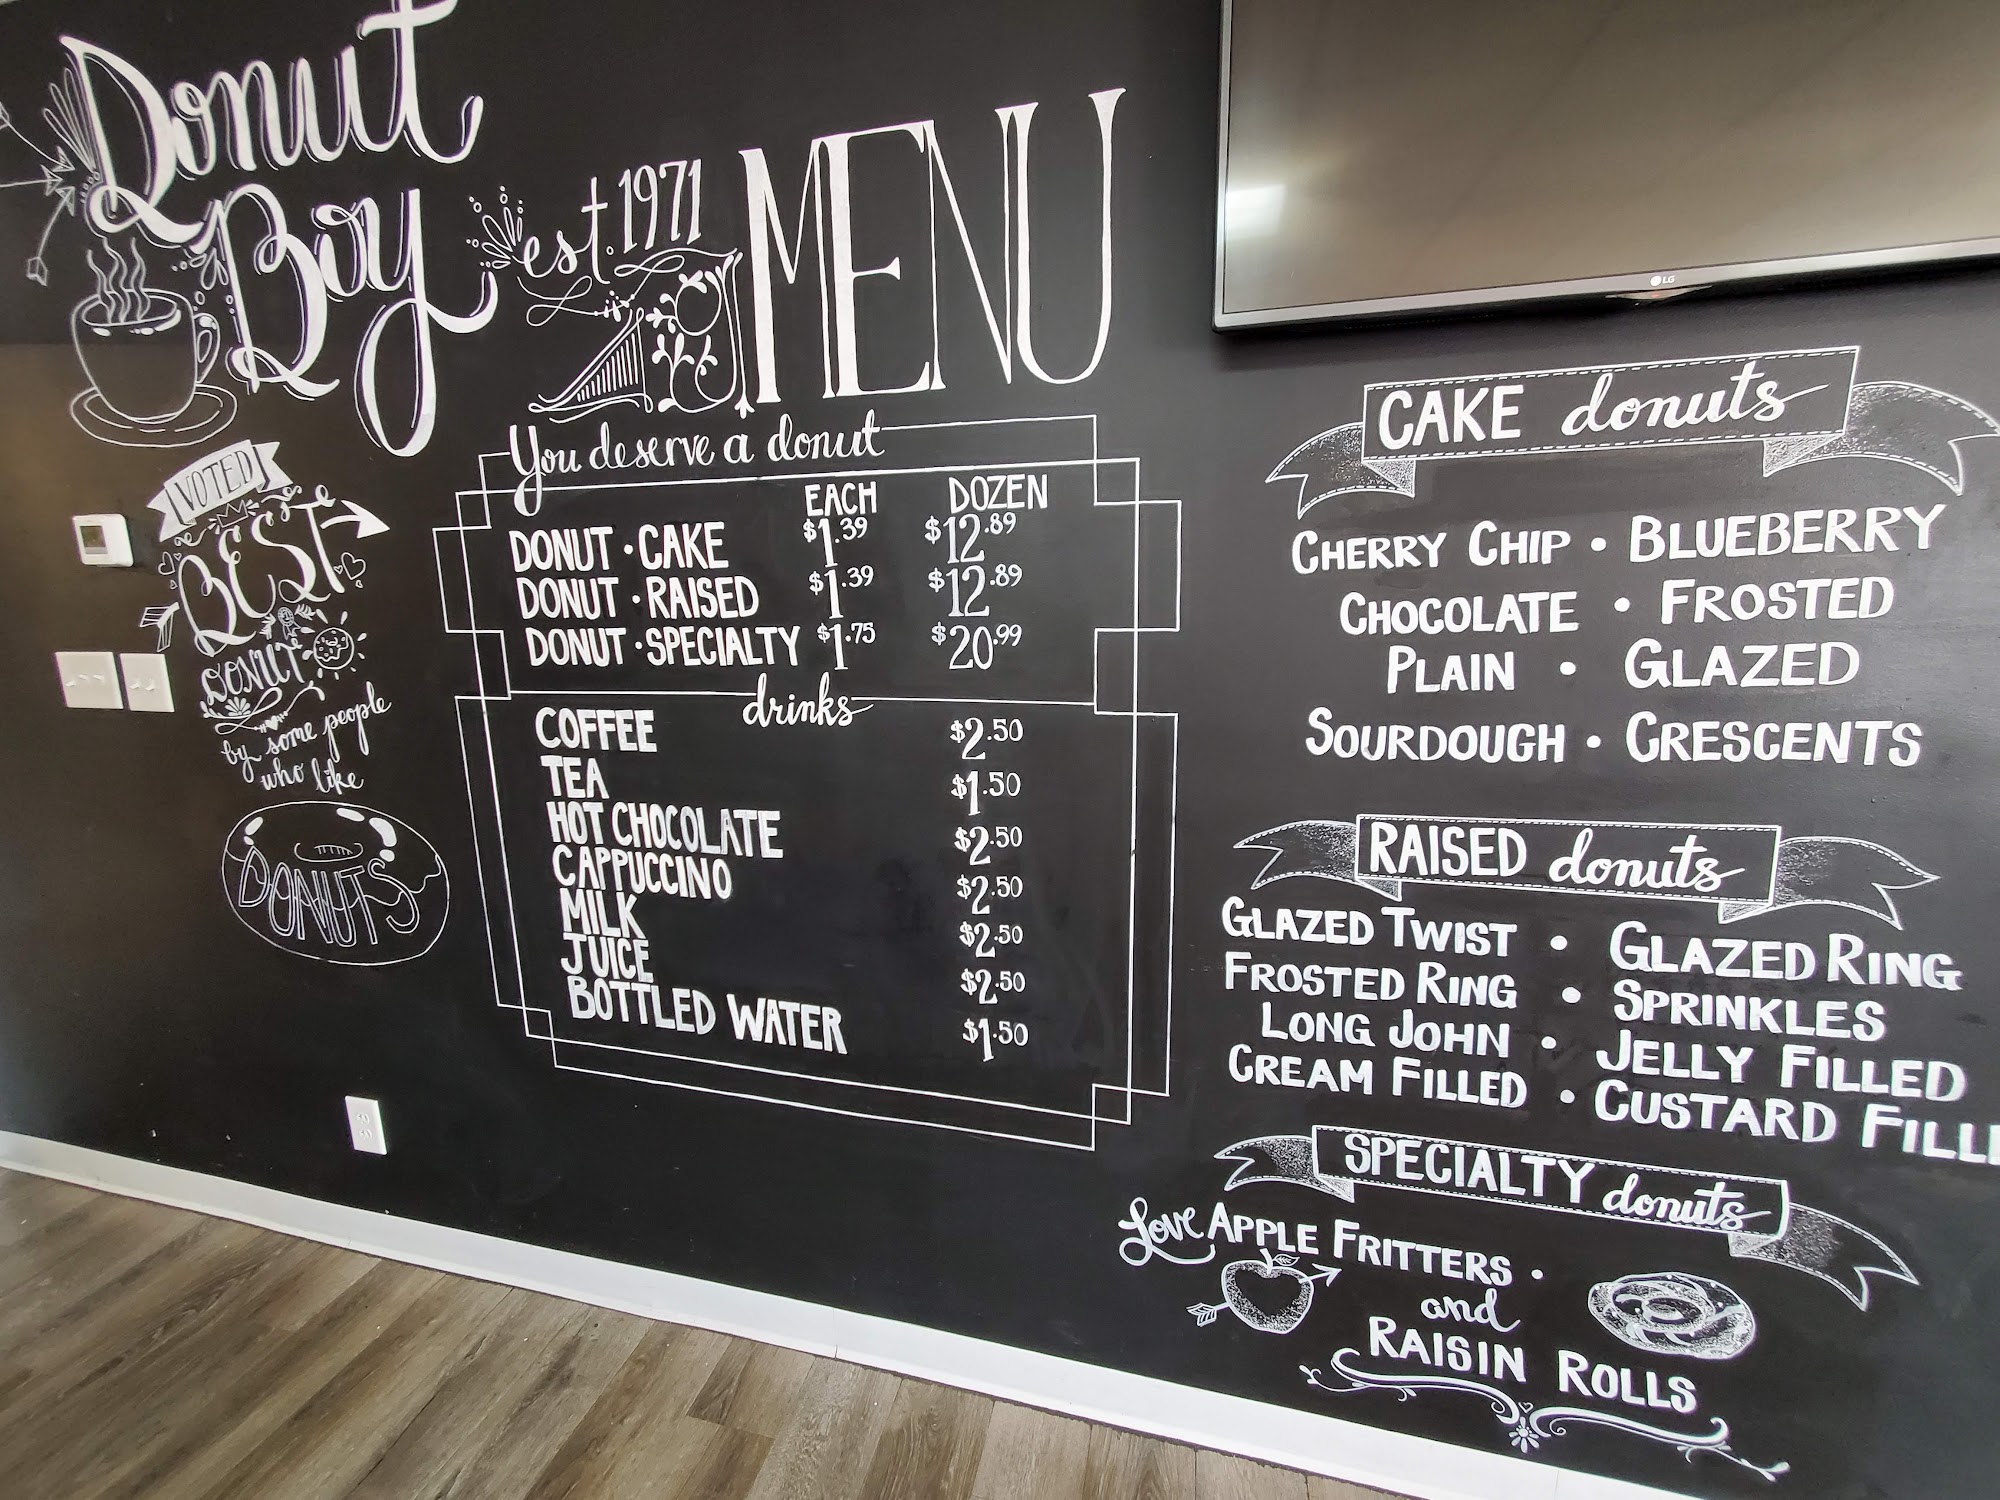 Donut
Boy
est. 1971
MENU
VOTED
BEST
DONUT
by some people
who like
DONUTS
You deserve a donut
EACH DOZEN
DONUT · CAKE $1.39 $12.89
DONUT · RAISED $1.39 $12.89
DONUT · SPECIALTY $1.75 $20.99
drinks
COFFEE $2.50
TEA $1.50
HOT CHOCOLATE $2.50
CAPPUCCINO $2.50
MILK $2.50
JUICE $2.50
BOTTLED WATER $1.50
LG
CAKE donuts
CHERRY CHIP · BLUEBERRY
CHOCOLATE · FROSTED
PLAIN · GLAZED
SOURDOUGH · CRESCENTS
RAISED donuts
GLAZED TWIST · GLAZED RING
FROSTED RING · SPRINKLES
LONG JOHN · JELLY FILLED
CREAM FILLED · CUSTARD FILL
SPECIALTY donuts
Love APPLE FRITTERS ·
and
RAISIN ROLLS